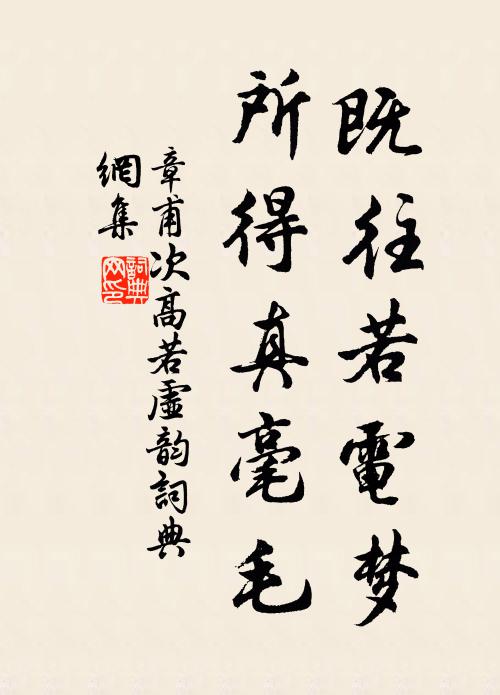 既往若電梦
所得真毫毛
章甫次高若虛韵詞典
網集
詞典
网印